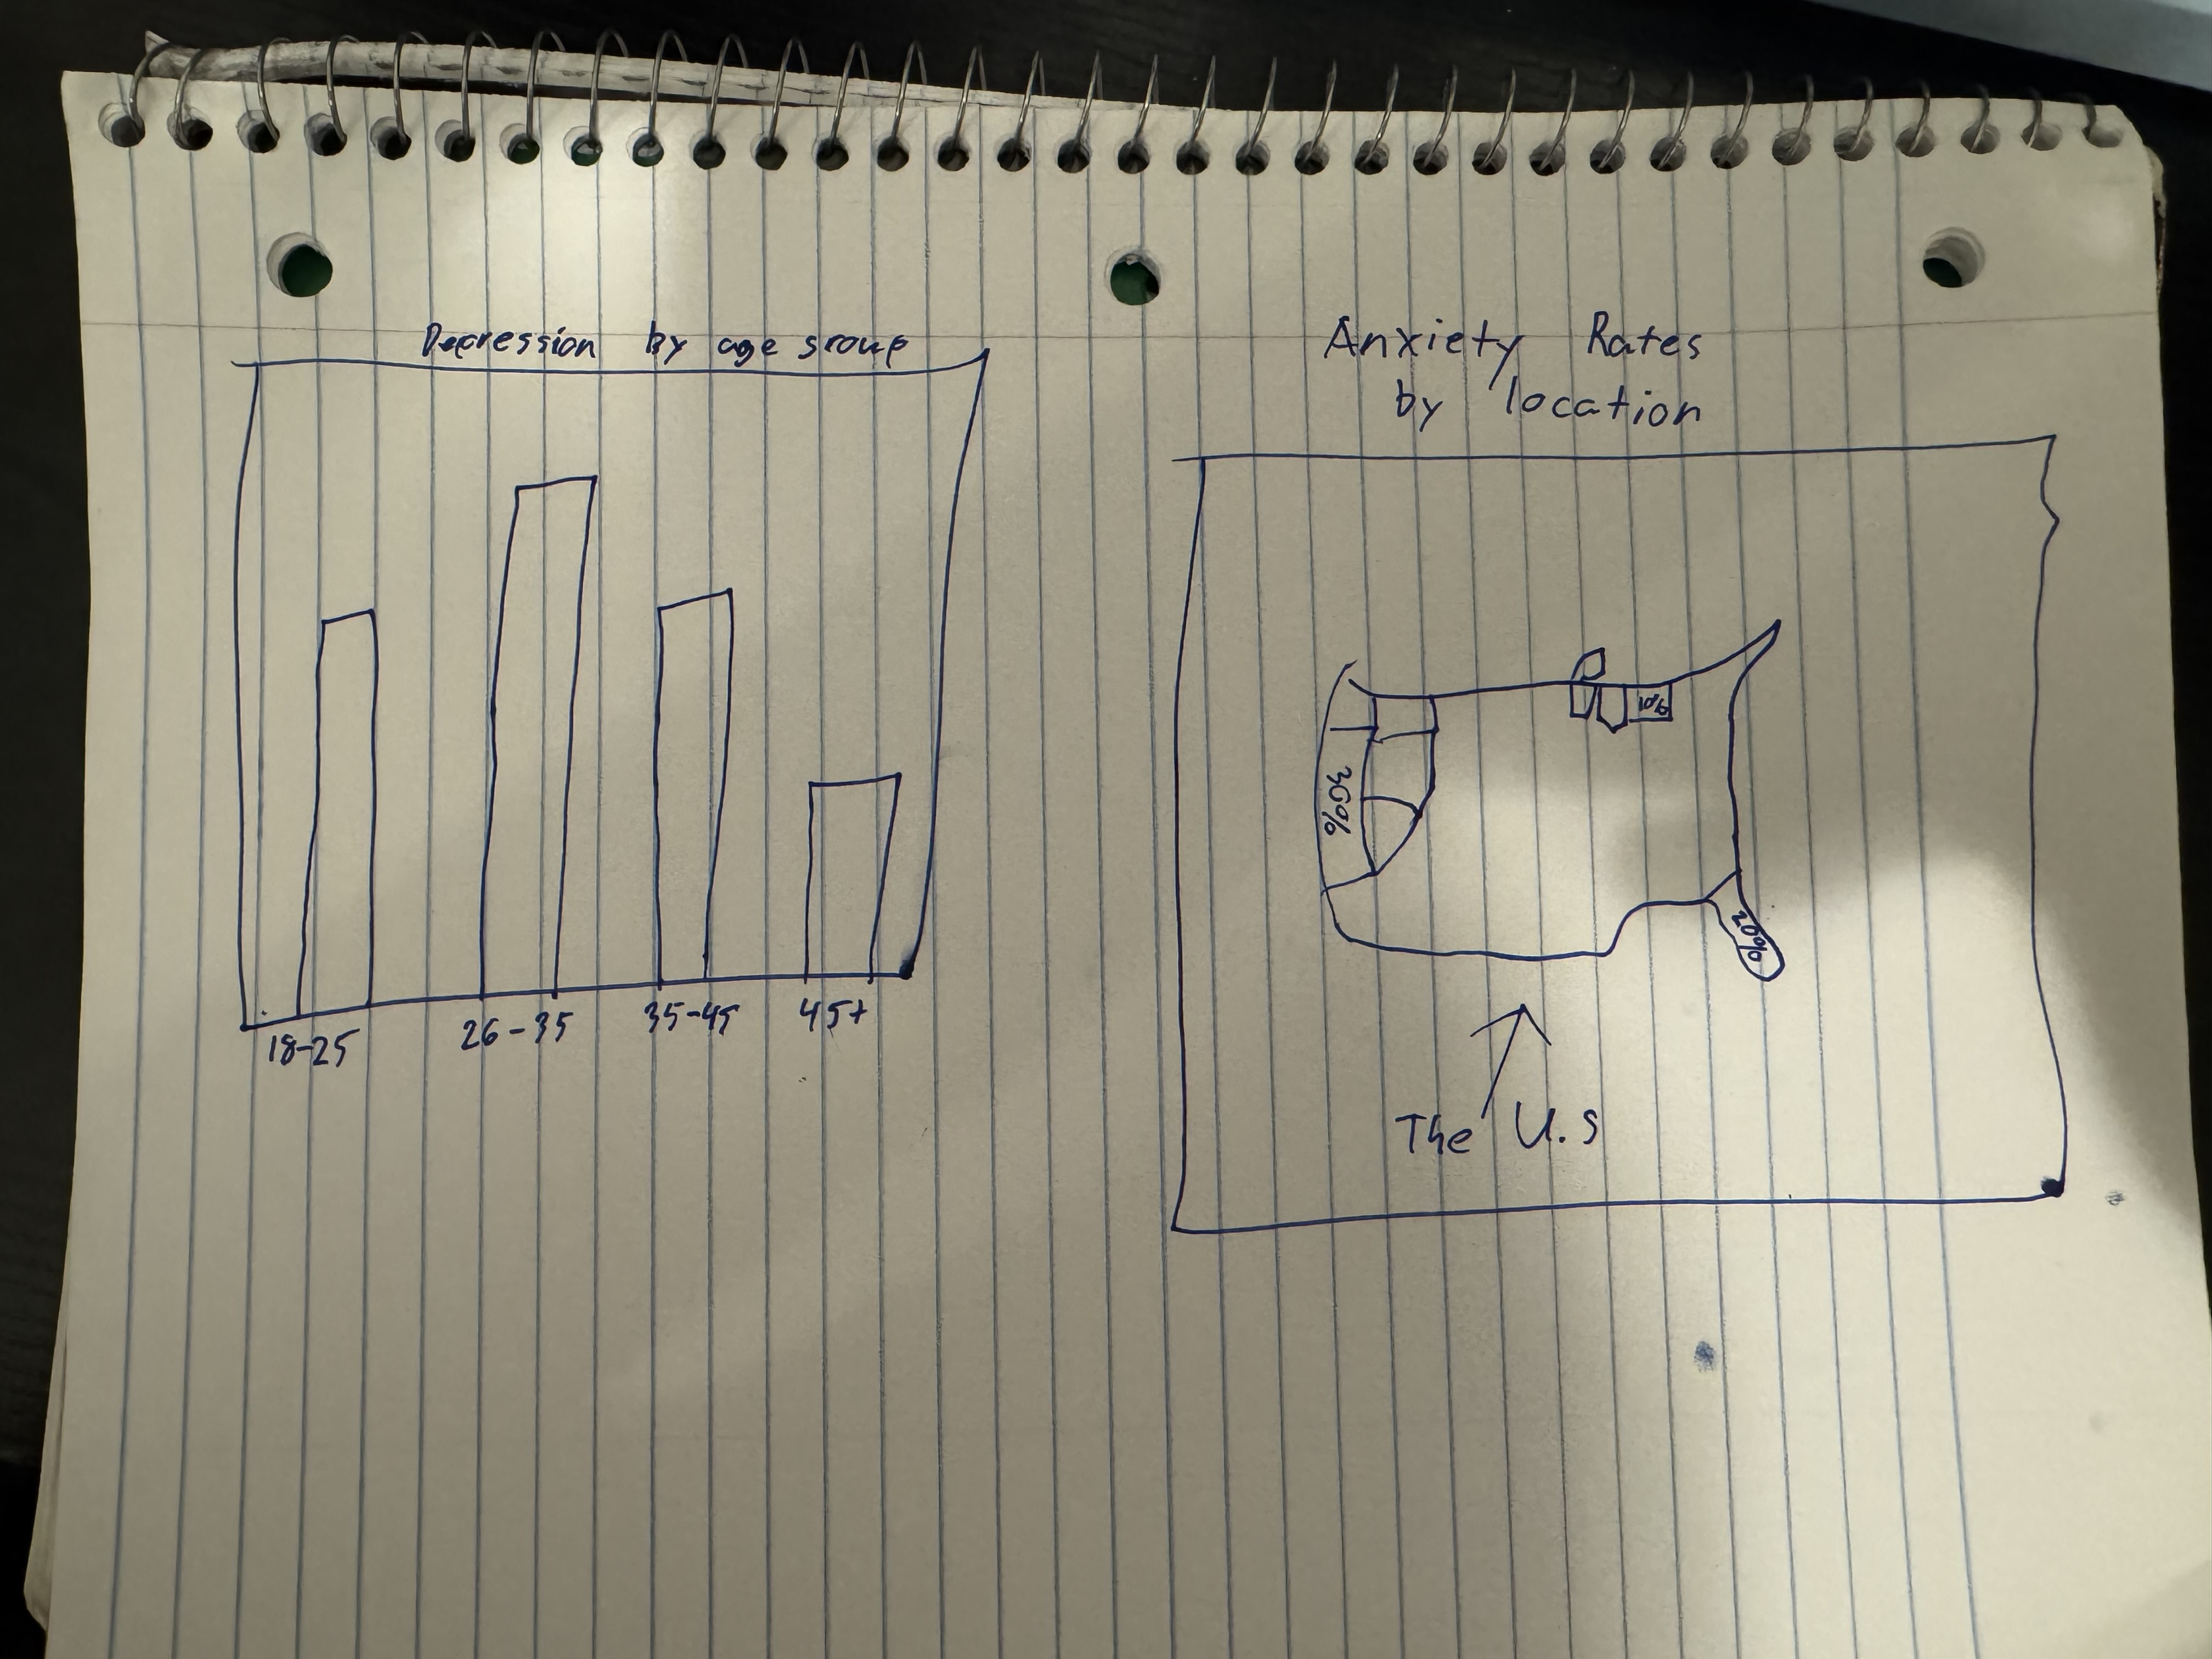 Depression by age group
18-25
26-35
35-45
45+
Anxiety Rates
by location
30%
10%
20%
The U.S